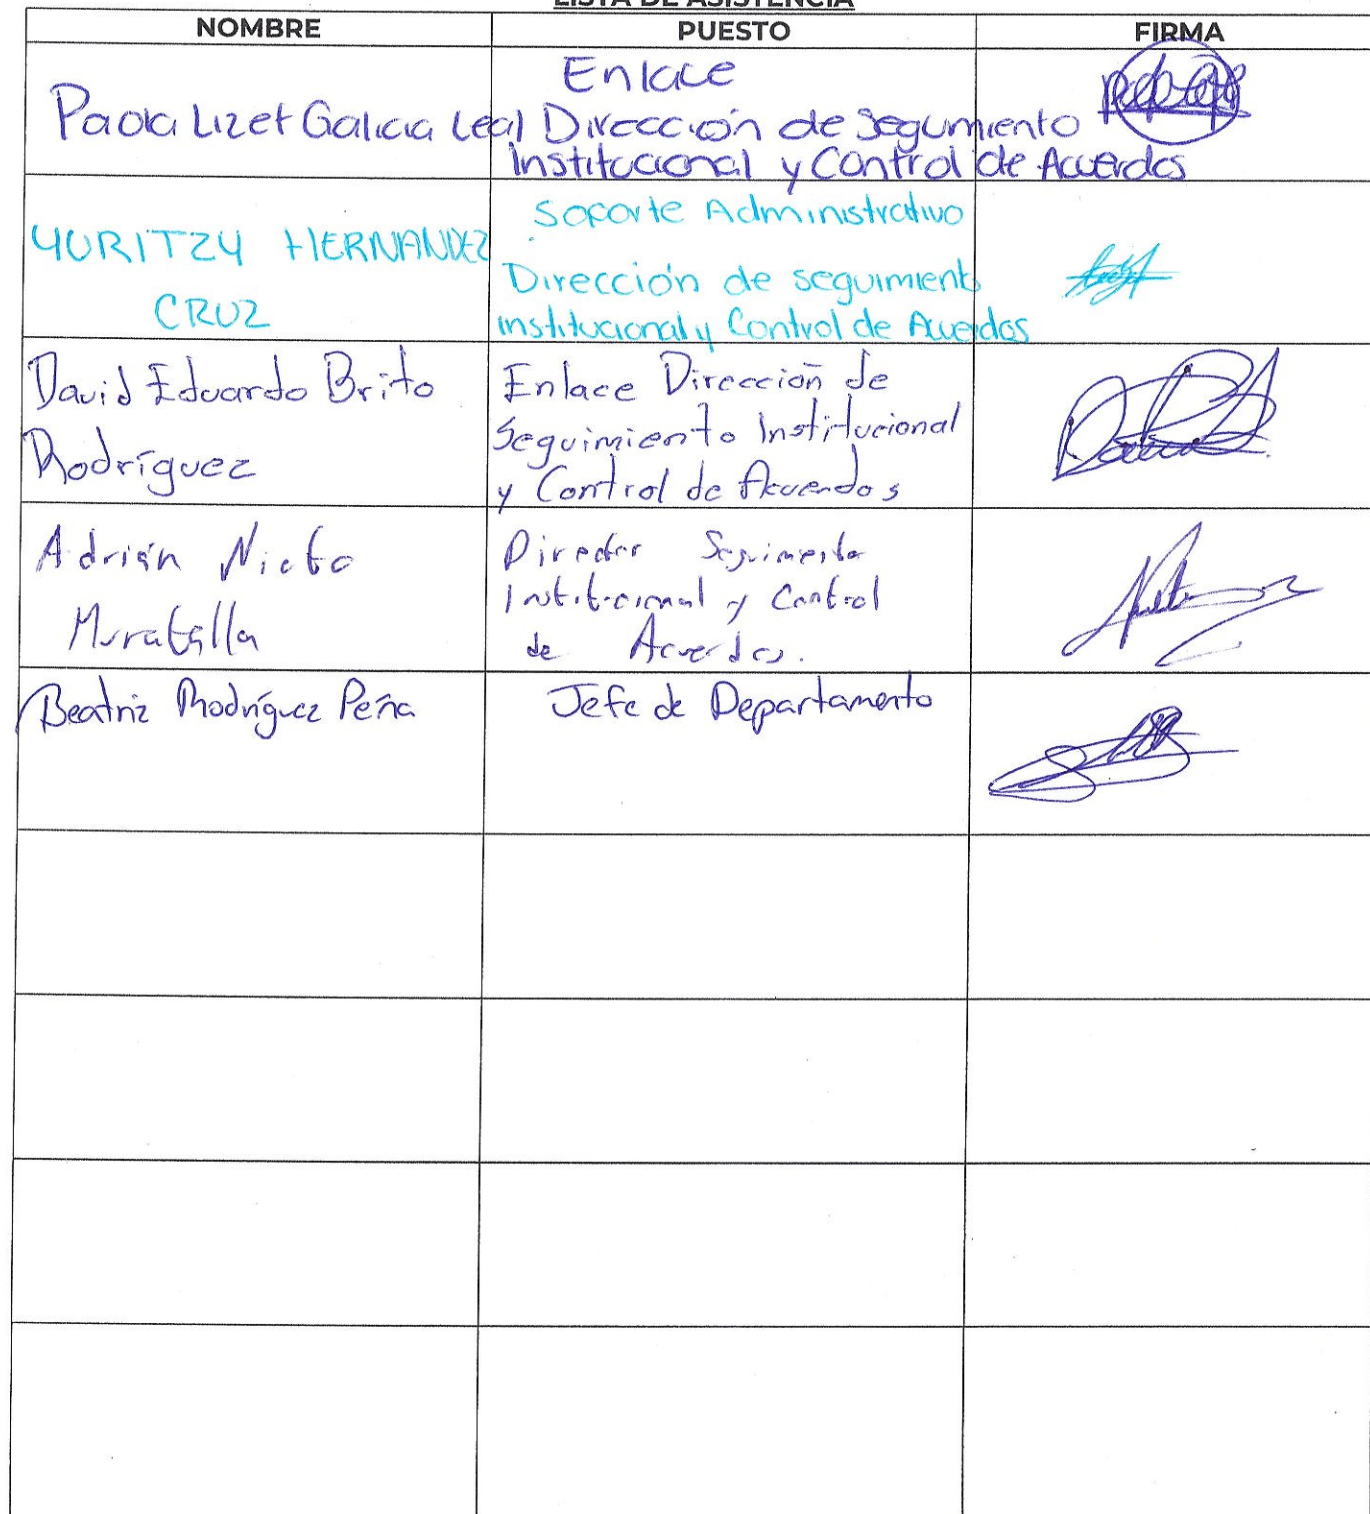 LISTA DE ASISTENCIA
NOMBRE PUESTO FIRMA
Enlace
Paola Lizet Galicia Leal Dirección de Segumiento
Institucional y Control de Acuerdos
Soporte Administrativo
YURITZY HERNANDEZ
Dirección de seguimiento
CRUZ
institucional y Control de Acuerdos
David Eduardo Brito
Rodríguez
Enlace Dirección de
Seguimiento Institucional
y Control de Acuerdos
Adrián Nieto
Muratalla
Director Seguimiento
Institucional y Control
de Acuerdos.
Beatriz Rodríguez Peña
Jefe de Departamento